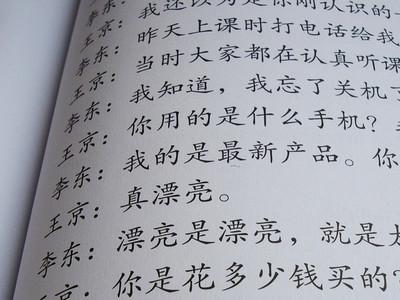 李东：
王京：我还以为是你刚认识的一
李东：昨天上课时打电话给我
王京：当时大家都在认真听课
李东：我知道，我忘了关机了
王京：你用的是什么手机？
李东：我的是最新产品。你
王京：真漂亮。
李东：漂亮是漂亮，就是太
王京：你是花多少钱买的？